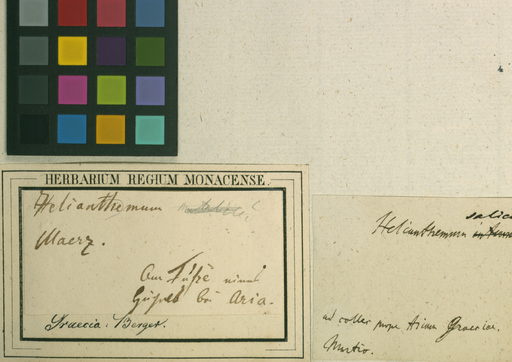 HERBARIUM REGIUM MONACENSE.
Helianthemum
Maerz.
Am Fuße eines
Hügels bei Aria.
Graecia: Berger.
salic
Helianthemum
ad colles prope Ariam Graeciae.
Martio.